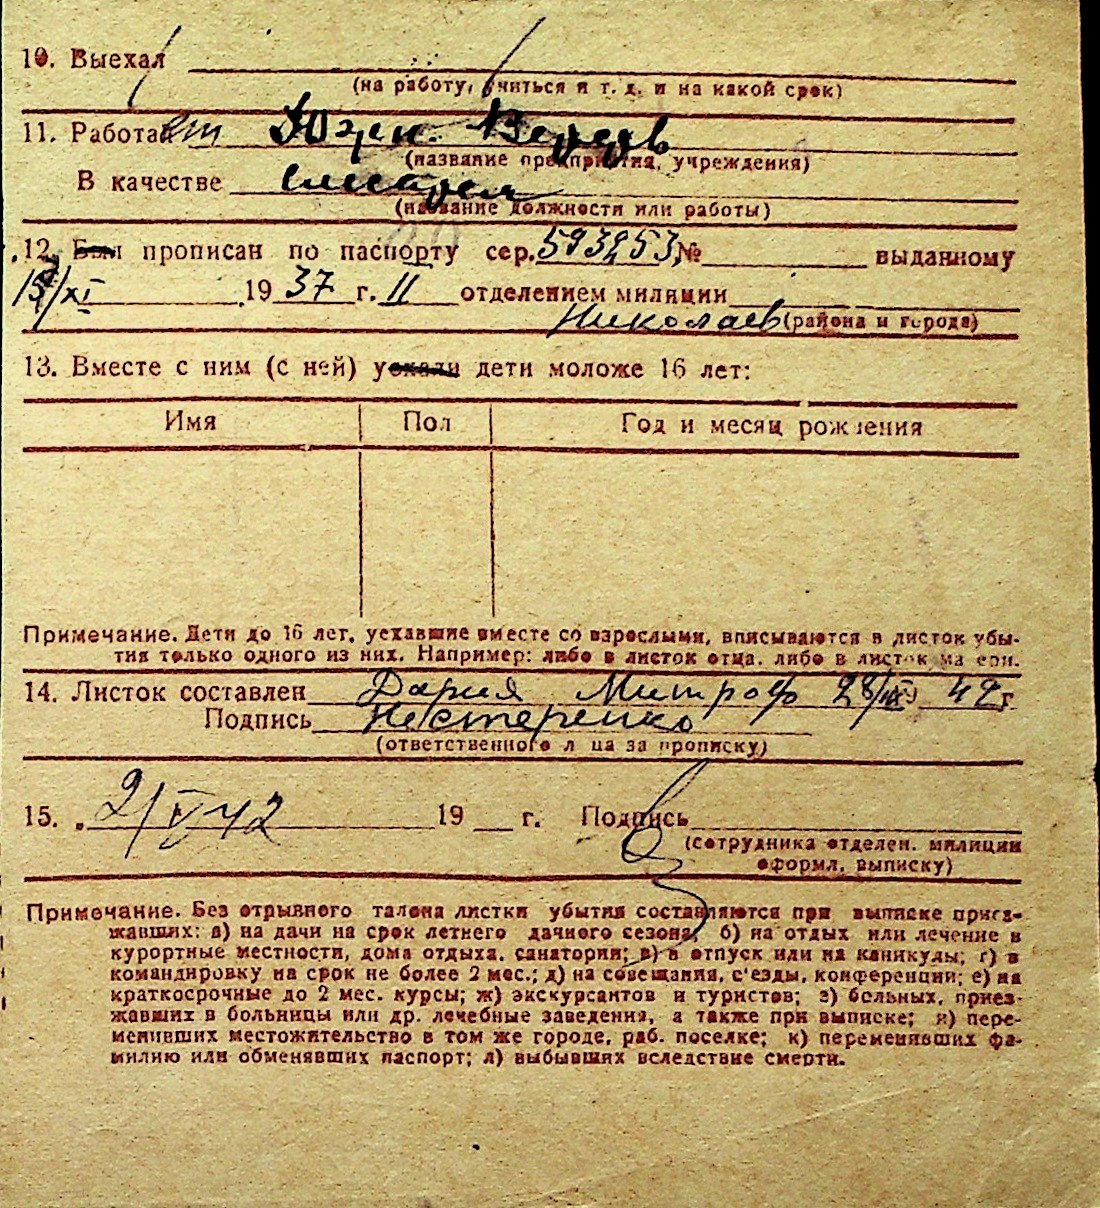 10. Выехал
(на работу, учиться и т. д. и на какой срок)
11. Работает Южн. Верфь
(название предприятия, учреждения)
В качестве слесаря
(название должности или работы)
12. Был прописан по паспорту сер. 593253 № выданному
15/XI 1937 г. II отделением милиции
Николаев (района и города)
13. Вместе с ним (с ней) уехали дети моложе 16 лет:
Имя Пол Год и месяц рождения
Примечание. Дети до 16 лет, уехавшие вместе со взрослыми, вписываются в листок убы-
тия только одного из них. Например: либо в листок отца, либо в листок матери.
14. Листок составлен Дария Митроф 28/ 42 г
Подпись Нестеренко
(ответственного лица за прописку)
15. 2/V 42 19 г. Подпись
(сотрудника отделен. милиции
оформл. выписку)
Примечание. Без отрывного талона листки убытия составляются при выписке приез-
жавших: а) на дачи на срок летнего дачного сезона; б) на отдых или лечение в
курортные местности, дома отдыха, санатории; в) в отпуск или на каникулы; г) в
командировку на срок не более 2 мес.; д) на совещания, с'езды, конференции; е) на
краткосрочные до 2 мес. курсы; ж) экскурсантов и туристов; з) больных, приез-
жавших в больницы или др. лечебные заведения, а также при выписке; и) пере-
менивших местожительство в том же городе, раб. поселке; к) переменивших фа-
милию или обменявших паспорт; л) выбывших вследствие смерти.